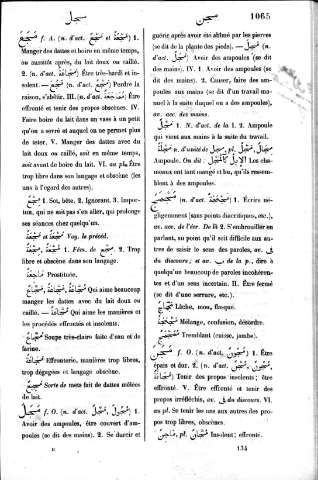 مجل
مجن
1065
مَجَعَ f. A. (n. d'act. مَجْع et مَجْعَة) 1.
Manger des dattes et boire en même temps,
ou aussitôt après, du lait doux ou caillé.
2. (n. d'act. مَجَاعَة) Être très-hardi et in-
solent. — مَجُعَ (n. d'act. ) Perdre la
raison, s'ébétir. III. (n. d'act. مُمَاجَعَة) Être
effronté et tenir des propos obscènes. IV.
Faire boire du lait dans un vase à un petit
qu'on a sevré et auquel on ne permet plus
de teter. V. Manger des dattes avec du
lait doux ou caillé, soit en même temps,
soit avant de boire du lait. VI. au pl. être
trop libre dans son langage et obscène (les
uns à l'égard des autres).
مِجْع 1. Sot, bête. 2. Ignorant. 3. Impor-
tun, qui ne sait pas s'en aller, qui prolonge
ses séances chez quelqu'un.
مُجَعَة et Voy. le précéd.
مِجْعَة 1. Fém. de مِجْع. 2. Trop
libre et obscène dans son langage.
مَاجِعَة Prostituée.
مَجَّاع, مَجَّاعَة Qui aime beaucoup
manger les dattes avec du lait doux ou
caillé. — مَجَّاعَة Qui aime les manières et
les procédés effrontés et insolents.
مُجَاع Soupe très-claire faite d'eau et de
farine.
مَجَاعَة Effronterie, manières trop libres,
trop dégagées et langage obscène.
مَجِيع Sorte de mets fait de dattes mêlées
de lait.
مَجَلَ f. O. (n. d'act. مَجْل, مُجُول) 1.
Avoir des ampoules, être couvert d'am-
poules (se dit des mains). 2. Se durcir et
guérir après avoir été abîmé par les pierres
(se dit de la plante des pieds). — مَجِلَ (n.
d'act. مَجَل) Avoir des ampoules (se dit
des mains). IV. 1. Avoir des ampoules (se
dit des mains). 2. Causer, faire des am-
poules aux mains (se dit d'un travail ma-
nuel à la suite duquel on a des ampoules),
av. acc. des mains.
مَجْل 1. N. d'act. de la I. 2. Ampoule
qui vient aux mains à la suite du travail.
مَجْلَة n. d'unité de مَجْل, pl. مِجَال, مَجْل
Ampoule. On dit: الابل كالمجل Les cha-
meaux ont tant mangé et bu, qu'ils ressem-
blent à des ampoules.
مَجْمَجَ (n. d'act. مَجْمَجَة) 1. Écrire né-
gligemment (sans points diacritiques, etc.),
av. acc. de l'écr. De là 2. S'embrouiller en
parlant, au point qu'il soit difficile aux au-
tres de saisir le sens des paroles, av. فى
du discours; et av. ب de la p., dire à
quelqu'un beaucoup de paroles incohéren-
tes et d'un sens incertain. II. Être fermé
(se dit d'une serrure, etc.).
مَجْمَاج Lâche, mou, flasque.
مَجْمَجَة Mélange, confusion, désordre.
مُمَجْمَج Tremblant (cuisse, jambe).
مَجَنَ f. O. (n. d'act. مُجُون) 1. Être
épais et dur. 2. (n. d'act. مَجَانَة, مُجُون, مُجْن)
Tenir des propos insolents; être
effronté. V. Être effronté et tenir des
propos irréfléchis, av. فى du discours. VI.
au pl. Se tenir les uns aux autres des pro-
pos trop libres, obscènes.
مَاجِن, pl. مُجَّان Insolent; effronté.
II
134